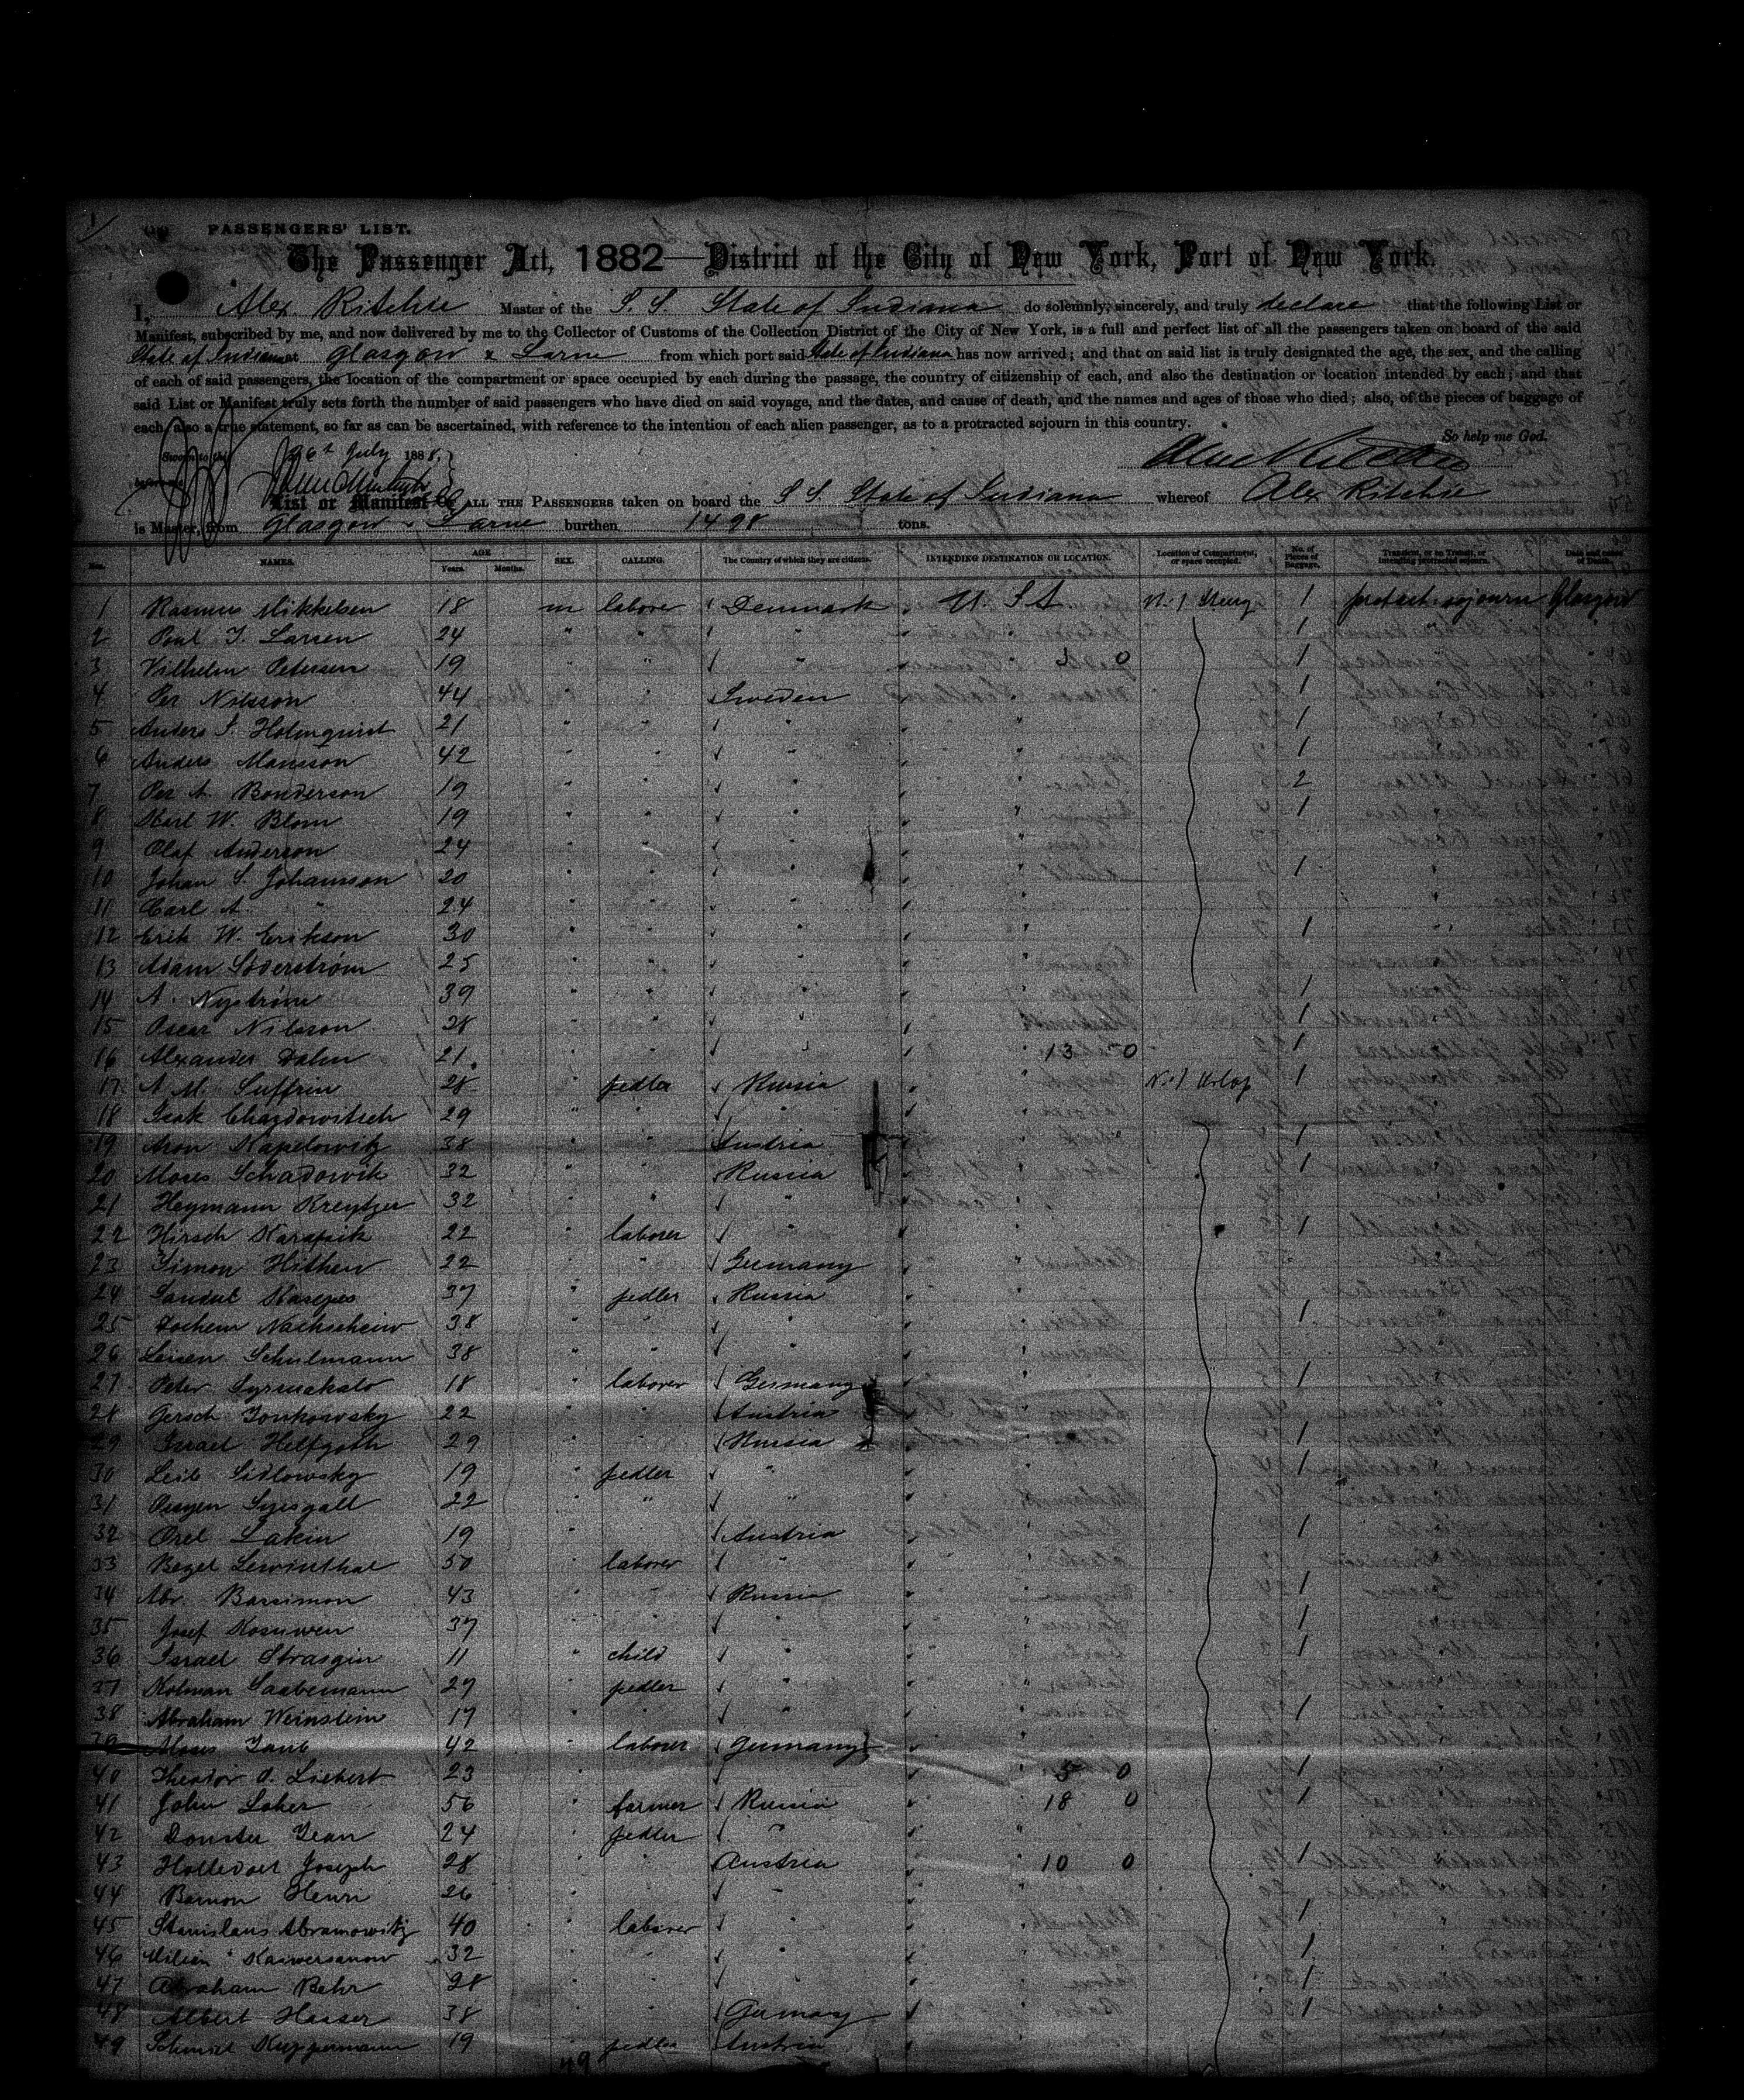 PASSENGERS' LIST.
The Passenger Act, 1882—District of the City of New York, Port of New York.
I, Alex. Ritchie Master of the S. S. State of Indiana do solemnly, sincerely, and truly declare that the following List or
Manifest, subscribed by me, and now delivered by me to the Collector of Customs of the Collection District of the City of New York, is a full and perfect list of all the passengers taken on board of the said
State of Indiana at Glasgow & Larne from which port said State of Indiana has now arrived; and that on said list is truly designated the age, the sex, and the calling
of each of said passengers, the location of the compartment or space occupied by each during the passage, the country of citizenship of each, and also the destination or location intended by each; and that
said List or Manifest truly sets forth the number of said passengers who have died on said voyage, and the dates, and cause of death, and the names and ages of those who died; also, of the pieces of baggage of
each, also a true statement, so far as can be ascertained, with reference to the intention of each alien passenger, as to a protracted sojourn in this country.
So help me God.
Sworn to this 26th July 1888
Alex Ritchie
before me
List or Manifest OF ALL THE PASSENGERS taken on board the S S. State of Indiana whereof Alex Ritchie
is Master, from Glasgow & Larne burthen 1498 tons.
Nos. NAMES. AGE Years. Months. SEX. CALLING. The Country of which they are citizens. INTENDING DESTINATION OR LOCATION. Location of Compartment, or space occupied. No. of Pieces of Baggage. Transient, or in Transit, or intending protracted sojourn. Date and cause of Death.
1 Rasmus Mikkelsen 18 m labore Denmark U. S A No. 1 Steerg 1 protract sojourn Glasgow
2 Poul J. Larsen 24 " " " " 1
3 Vilhelm Petersen 19 " " " 0 1
4 Per Nilsson 44 " " Sweden " 1
5 Anders S. Holmquist 21 " " " " 1
6 Anders Mansson 42 " " " " 1
7 Per A. Bonderson 19 " " " " 2
8 Karl W. Blom 19 " " " " 1
9 Olaf Anderson 24 " " " "
10 Johan S. Johansson 20 " " " " 1
11 Carl A. " 24 " " " "
12 Erik W. Erikson 30 " " " " 1
13 Adam Söderström 25 " " " "
14 A. Nyström 39 " " " " 1
15 Oscar Nilsson 28 " " " " 1
16 Alexander Dalm 21 " " " 13 50 1
17 A. M. Suffrin 28 " pedler Russia " No. 1 Orlop 1
18 Isak Chazdowitsch 29 " " " "
19 Aron Kapelowitz 38 " " Austria " 1
20 Moses Schadowik 32 " " Russia " 1
21 Heymann Kreytzer 32 " " " "
22 Hirsch Karapik 22 " laborer " " 1
23 Simon Hithen 22 " " Germany "
24 37 " pedler Russia "
25 Jochem 38 " " " " 1
26 Leisen Schulmann 38 " " " "
27 Peter 18 " laborer Germany " 1
28 Gersch Jonkowsky 22 " " Austria "
29 Israel Helfgoth 29 " " Russia " 1
30 Leib Sidlowsky 19 " pedler " " 1
31 22 " " " "
32 Orel Lakin 19 " " Austria " 1
33 Bezel Lewinthal 50 " laborer " "
34 Abr. Barsimon 43 " " Russia " 1
35 Josef 37 " " " " 1
36 Israel Strasgin 11 " child " " 1
37 Kolman 29 " pedler " "
38 Abraham Weinstein 17 " " " " 1
39 Moses Taub 42 " laborer Germany "
40 Theodor A. Liebert 23 " " " 5 0 1
41 John Loher 56 " farmer Russia 18 0 1
42 Jean 24 " pedler " "
43 Joseph 28 " " Austria 10 0 1
44 Barnon Henri 26 " " " "
45 Stanislaus Abramowitz 40 " laborer " " 1
46 32 " " " " 1
47 Abraham Behr 28 " " " " 1
48 Albert Hasser 38 " " Germany 1
49 Kuppermann 19 pedler Austria
49